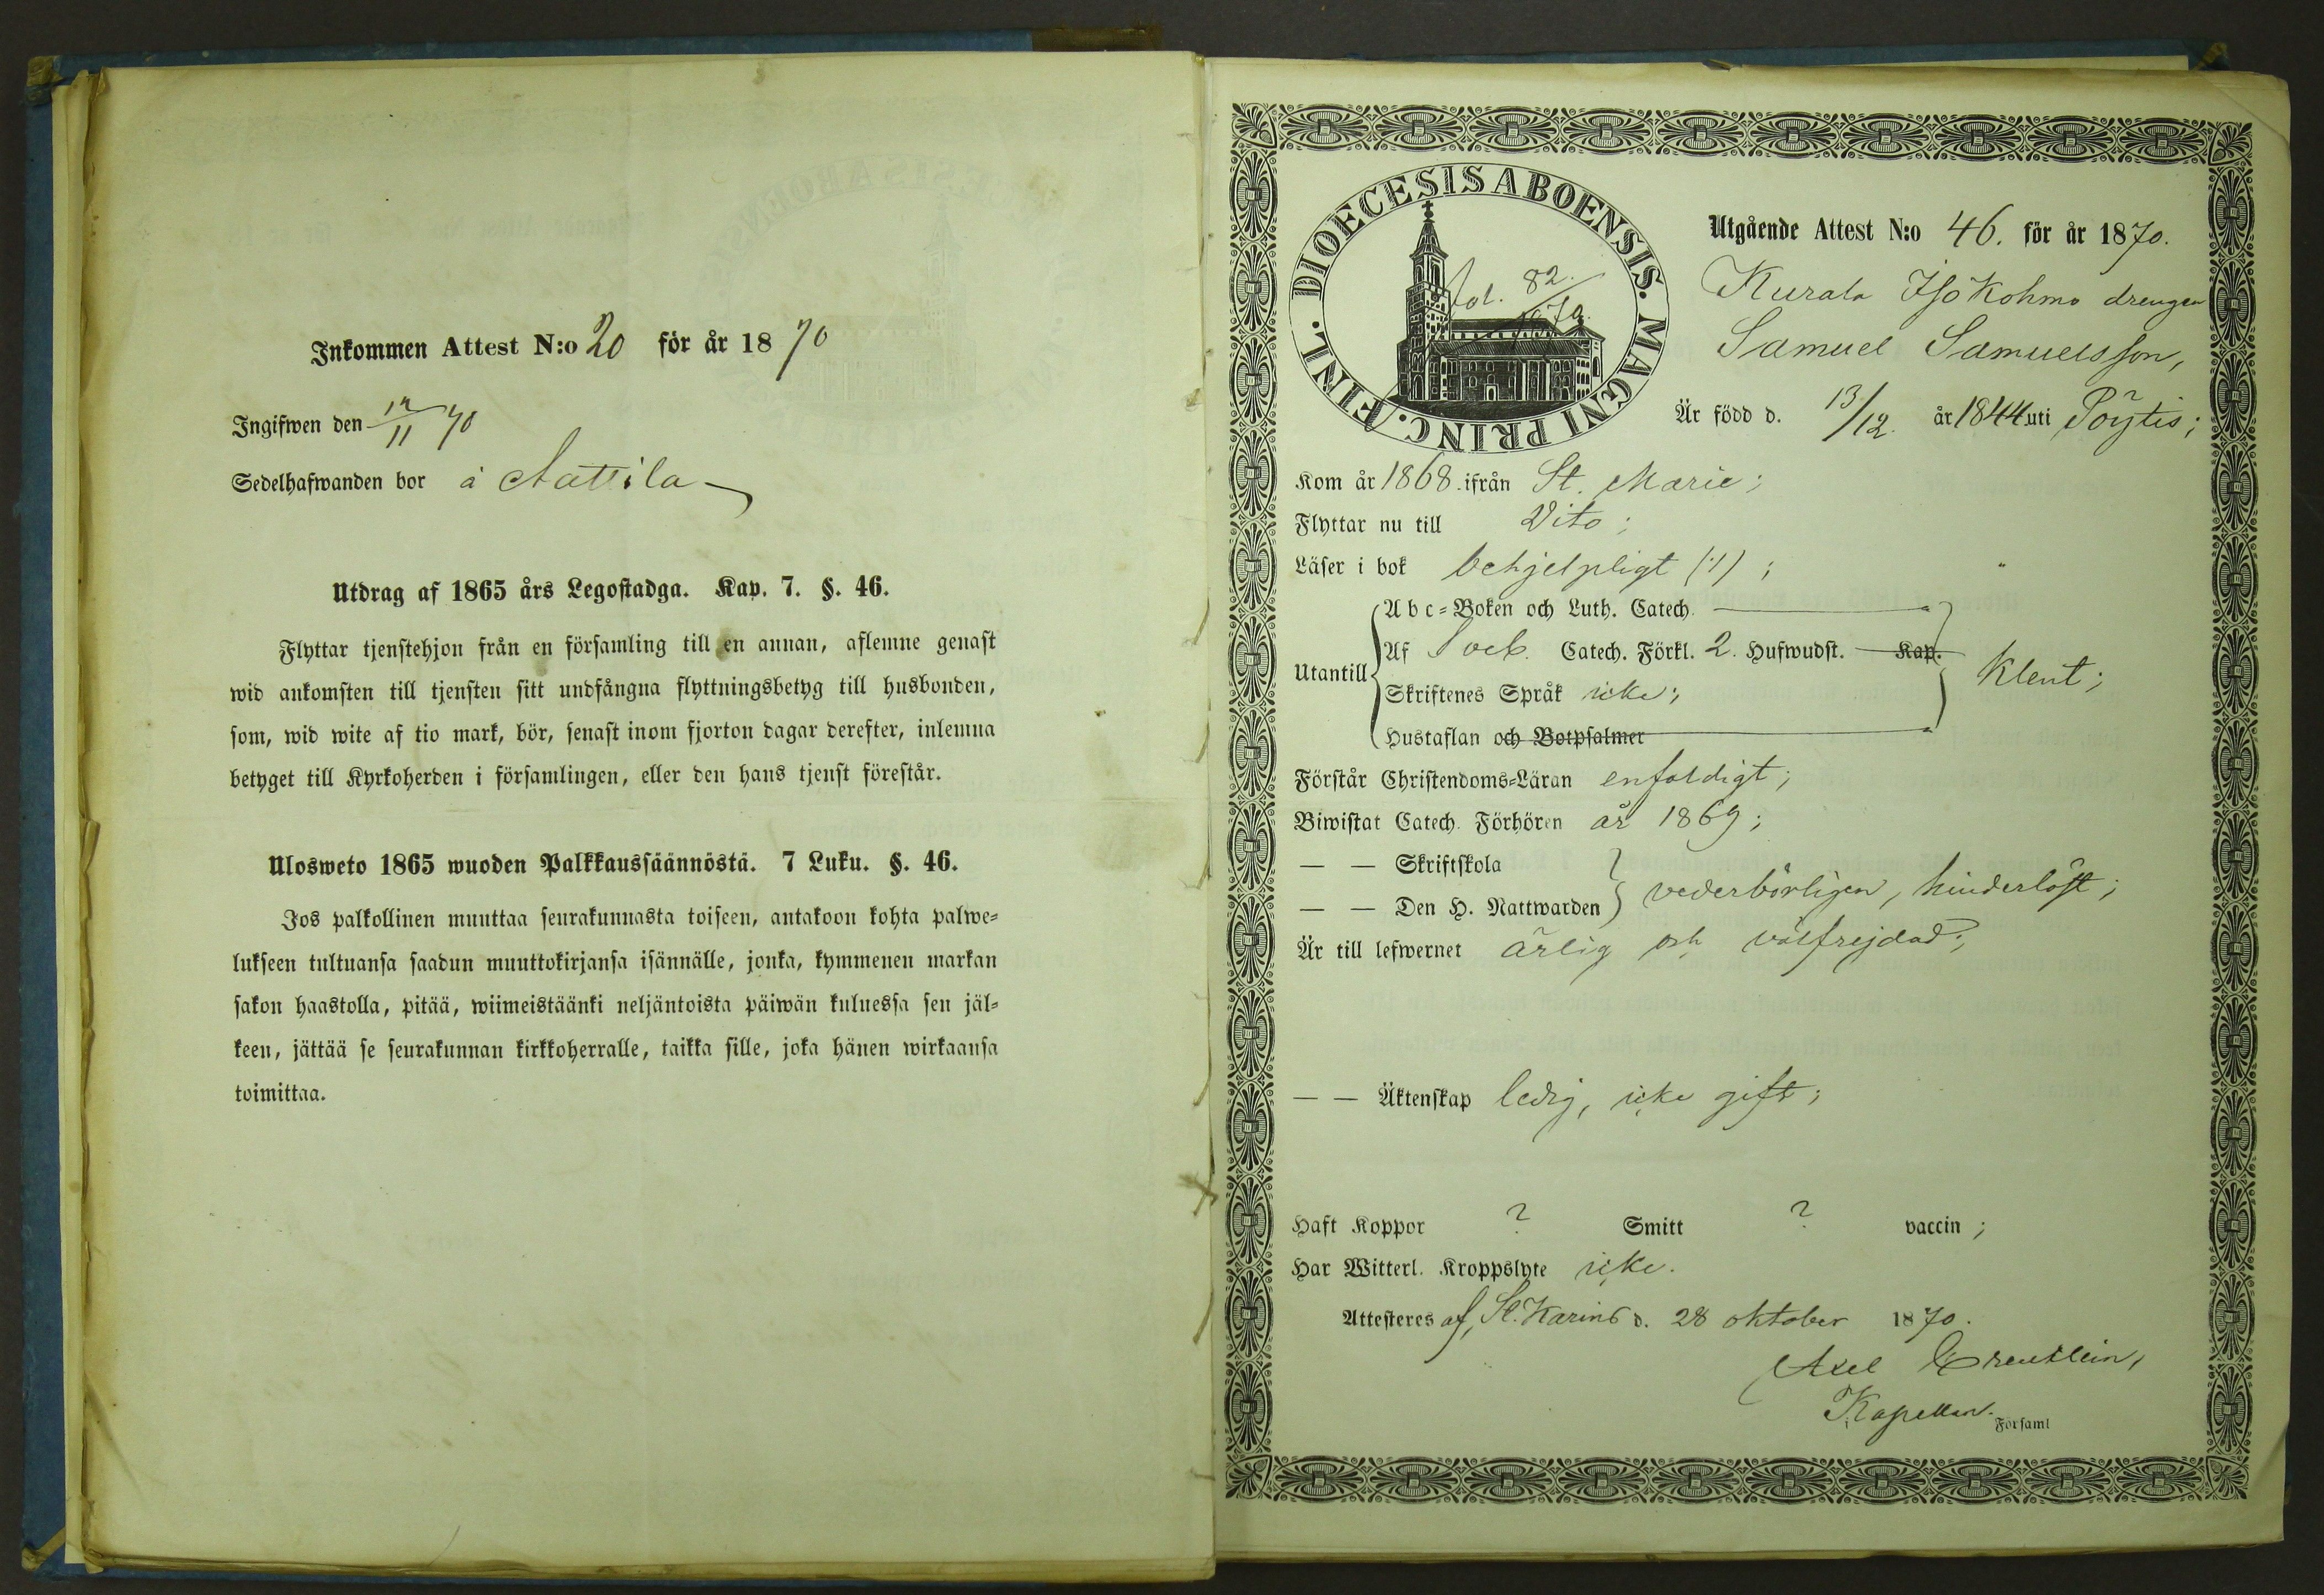 Inkommen Attest N:o 20 för år 1870
Ingifwen den 12/11 70
Sedelhafwanden bor å Nattila
Utdrag af 1865 års Legostadga. Kap. 7. §. 46.
Flyttar tjenstehjon från en församling till en annan, aflemne genast
wid ankomsten till tjensten sitt undfångna flyttningsbetyg till husbonden,
som, wid wite af tio mark, bör, senast inom fjorton dagar derefter, inlemna
betyget till Kyrkoherden i församlingen, eller den hans tjenst förestår.
Ulosweto 1865 wuoden Palkkaussäännöstä. 7 Luku. §. 46.
Jos palkollinen muuttaa seurakunnasta toiseen, antakoon kohta palwe-
lukseen tultuansa saadun muuttokirjansa isännälle, jonka, kymmenen markan
sakon haastolla, pitää, wiimeistäänki neljäntoista päiwän kuluessa sen jäl-
keen, jättää se seurakunnan kirkkoherralle, taikka sille, joka hänen wirkaansa
toimittaa.
DIOECESIS ABOENSIS. MAGNI PRINC. FINL.
fol. 82.
1870.
Utgående Attest N:o 46. för år 1870.
Kurala Isokohmo drengen
Samuel Samuelsson,
Är född d. 13/12. år 1844 uti Pöytis;
Kom år 1868 ifrån St. Marie;
Flyttar nu till Dito;
Läser i bok behjelpligt (4);
Abc-Boken och Luth. Catech.
Utantill Af Sveb. Catech. Förkl. 2. Hufwudst. Kap. klent;
Skriftenes Språk icke;
Hustaflan och Botpsalmer
Förstår Christendoms-Läran enfoldigt;
Biwistat Catech. Förhören år 1869;
— — Skriftskola
— — Den H. Nattwarden vederbörligen, hinderlöst;
Är till lefwernet ärlig och välfrejdad;
— — Äktenskap ledig, icke gift;
Haft Koppor ? Smitt ? vaccin;
Har Witterl. Kroppslyte icke.
Attesteres af, St. Karins d. 28 oktober 1870.
Axel Creutlein,
Kapellan.
Församl